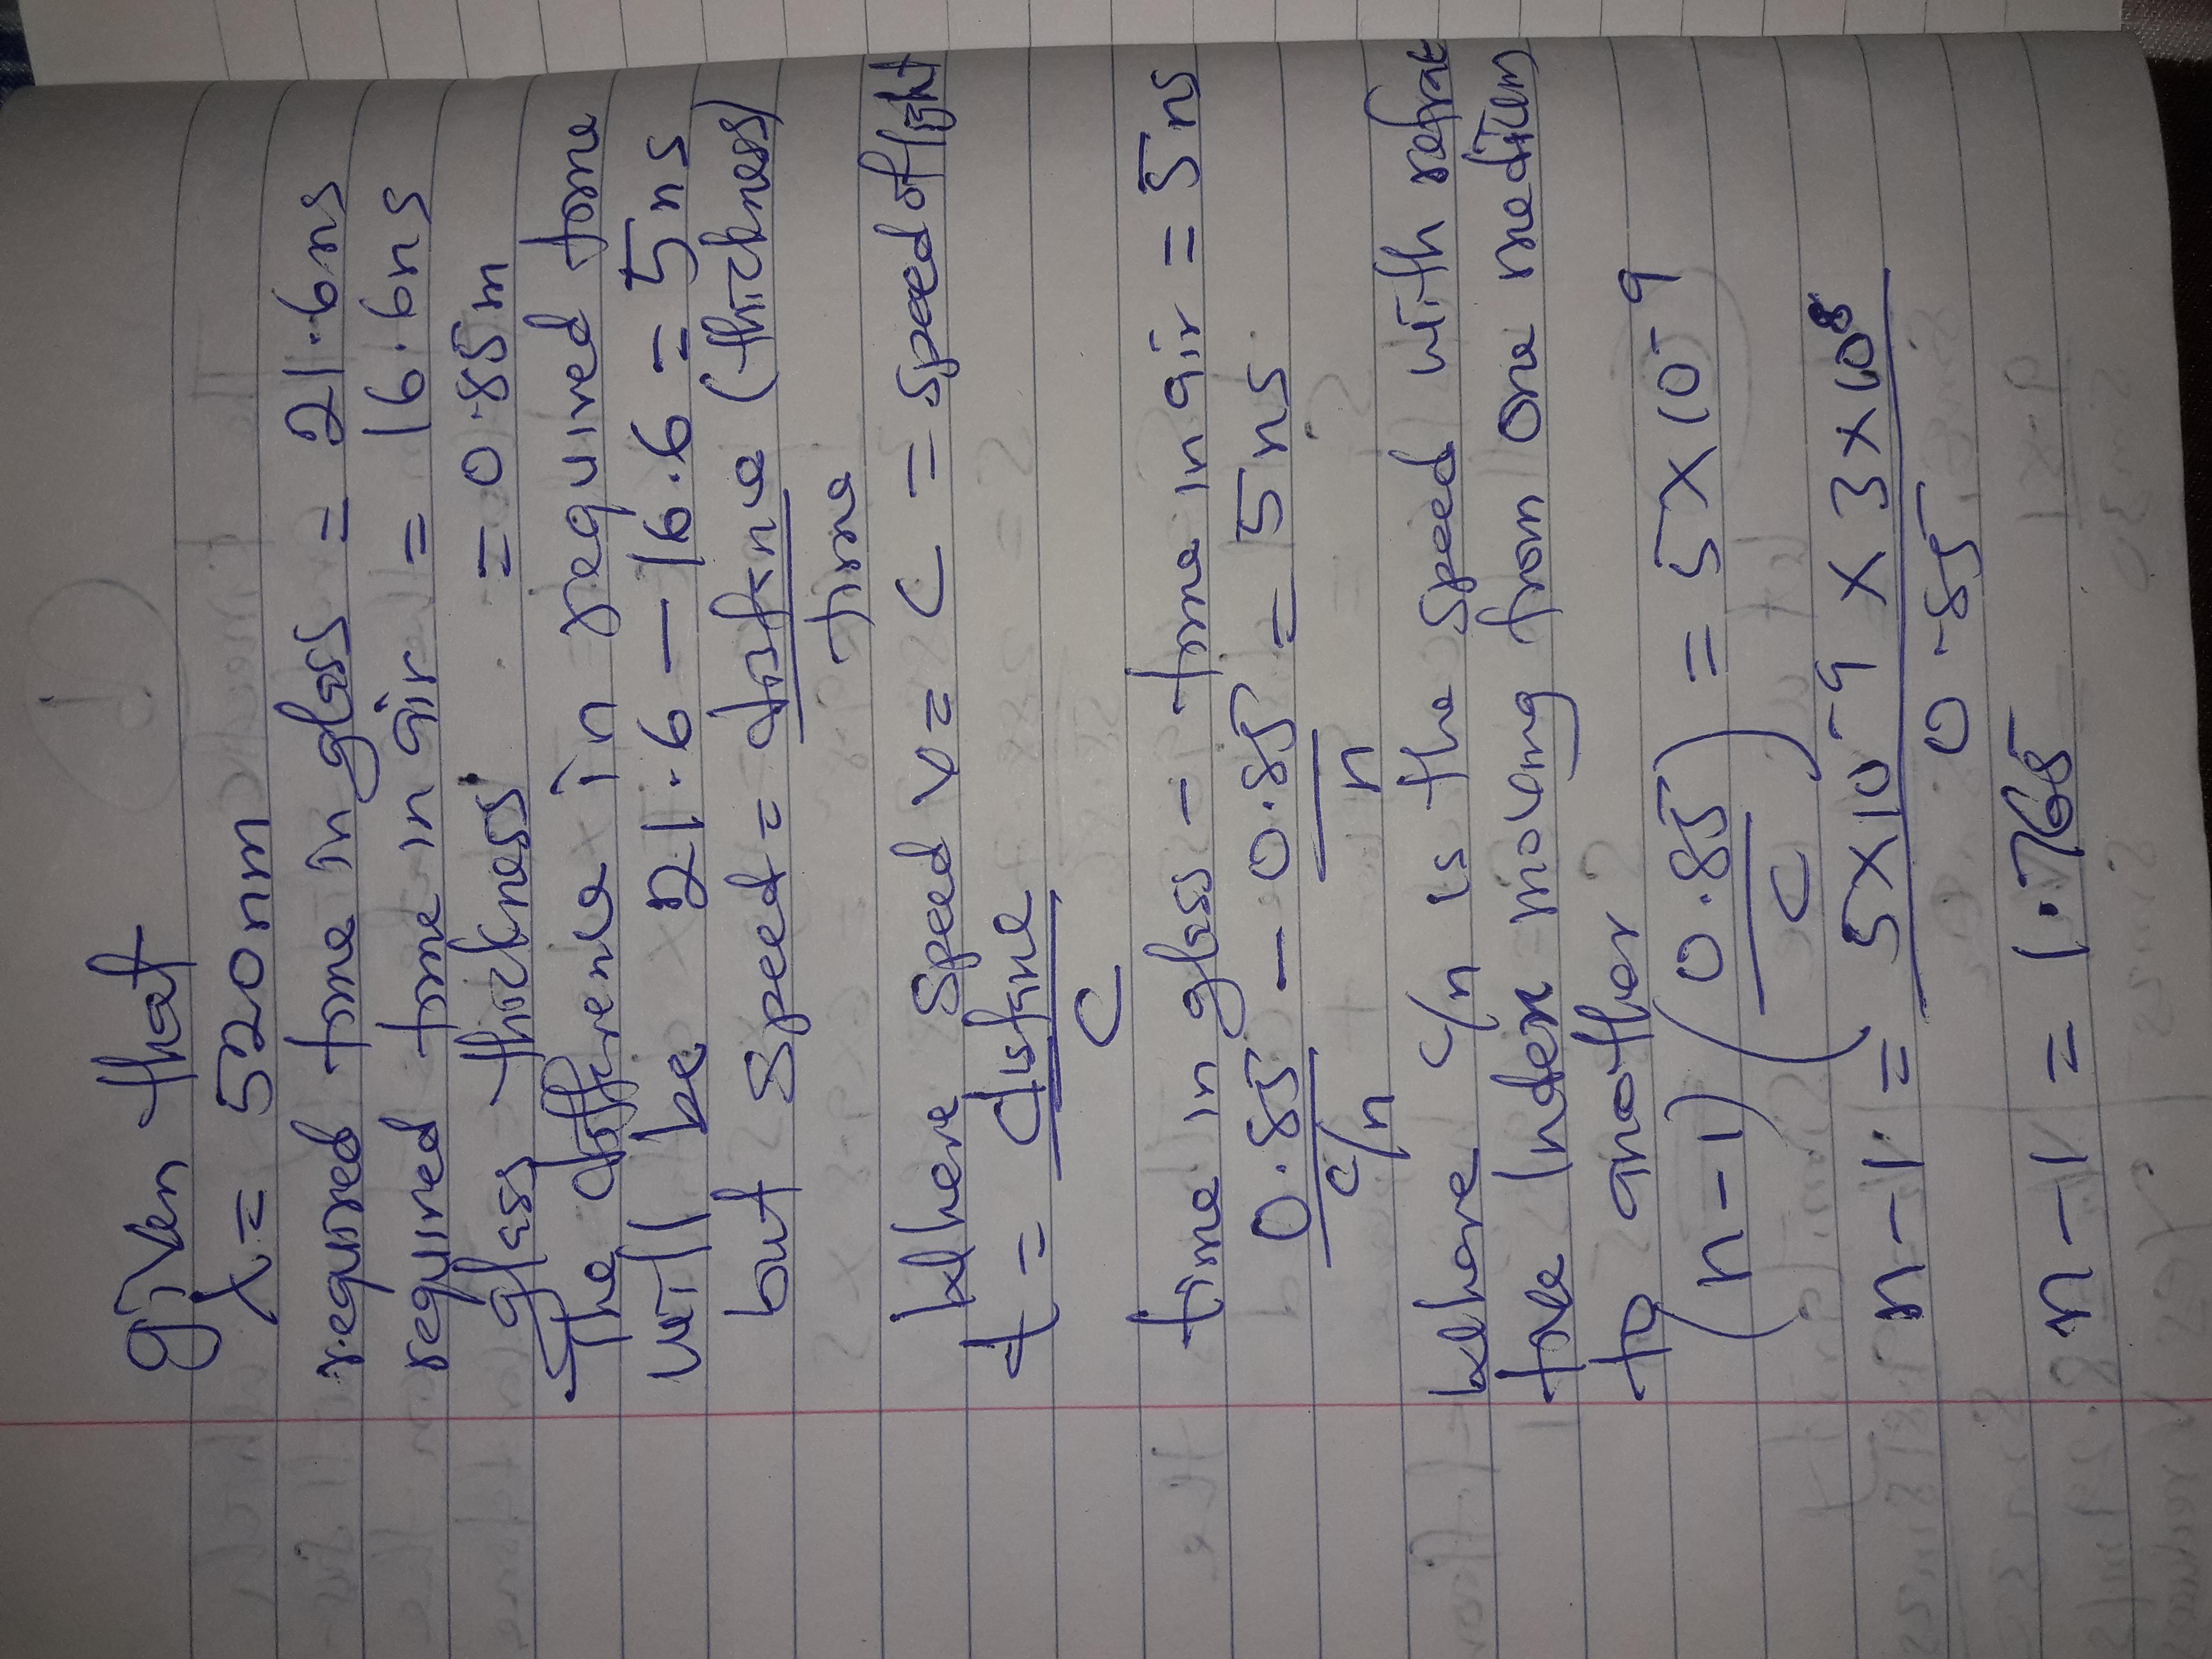 given that
λ = 520nm
required time in glass = 21.6ns
required time in air = 16.6ns
glass thickness = 0.85m
The difference in required time
will be 21.6 - 16.6 = 5ns
but speed = distance (thickness)
time
where speed v = c = speed of light
t = distance
c
time in glass - time in air = 5ns
0.85 - 0.85 = 5ns
c/n n
where c/n is the speed with refrac
tive index moving from one medium
to another
(n-1) (0.85) = 5×10-9
c
n-1 = 5×10-9 × 3×10⁸
0.85
n-1 = 1.765